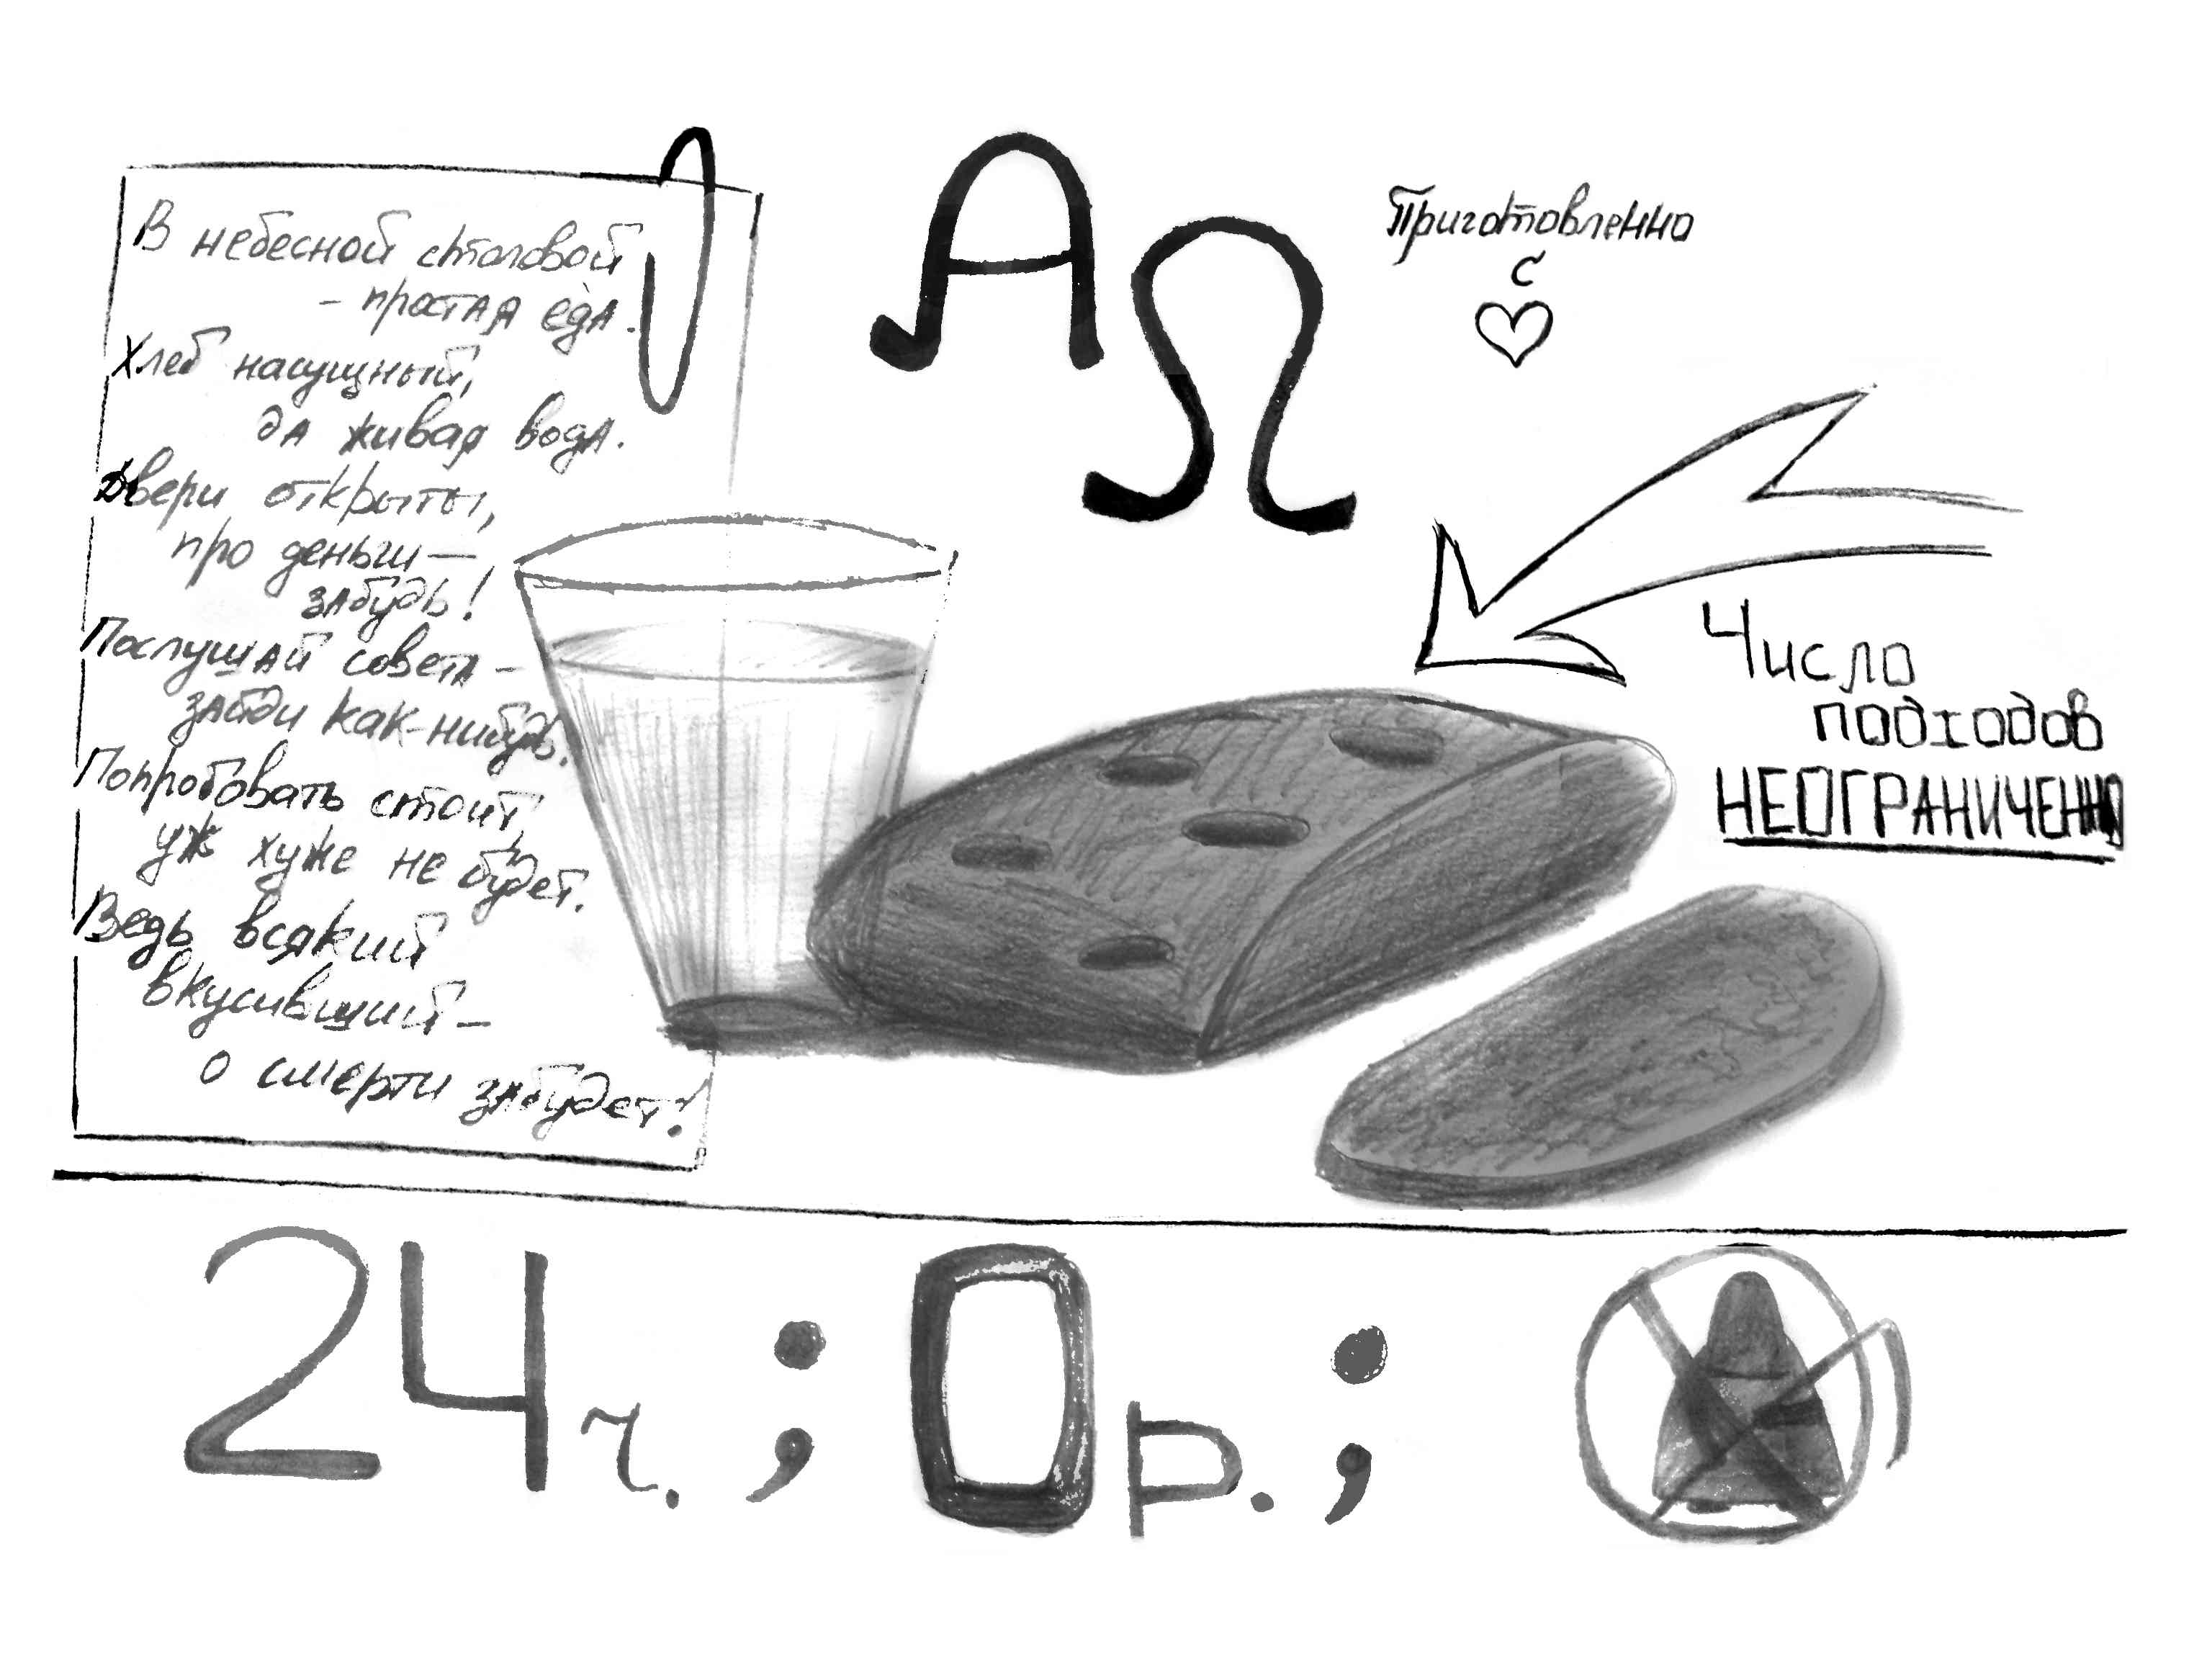 В небесной столовой
- простая еда.
Хлеб насущный,
да живая вода.
Двери открыты,
про деньги —
забудь!
Послушай совета -
зайди как-нибудь.
Попробовать стоит,
уж хуже не будет.
Ведь всякий
вкусивший -
о смерти забудет!
Α
Ω
Приготовленно
с
Число
подходов
НЕОГРАНИЧЕННО
24 ч. ; 0 р. ;